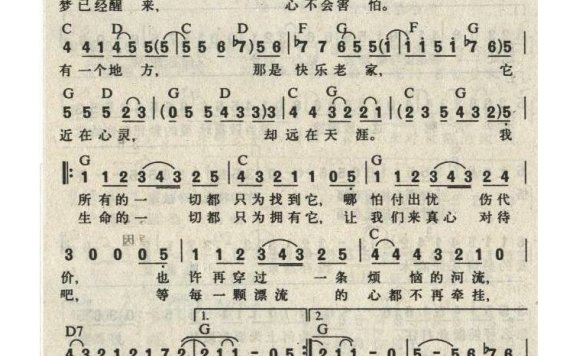 梦已经醒来， 心不会害怕。
C D C D F G C G
4 4 1 4 5 5 (5 | 5 5 6 ♭7) 5 6 | ♭7 7 6 5 5 (1 | 1 1 5 1 ♭7 6) 5
有一个地方， 那是快乐老家， 它
G D G C C G
5 5 5 2 3 | (0 5 5 4 3 3) 3 | 4 4 3 2 2 1 | (2 3 5 4 3 2) 5
近在心灵， 却远在天涯。 我
G C G G
1 1 2 3 4 3 3 | 4 3 2 1 1 0 5 | 1 1 2 3 4 3 3
所有的一 切都只为找到它，哪 怕付出忧 伤代
生命的一 切都只为拥有它，让 我们来真心 对待
G C
3 0 0 0 0 5 | 1 1 2 3 4 3 3 | 4 4 4 3 2 1 0
价， 也 许再穿过 一条 烦 恼的河流，
吧， 等 每一颗漂流 的 心都不再牵挂，
D7 1. G 2. G